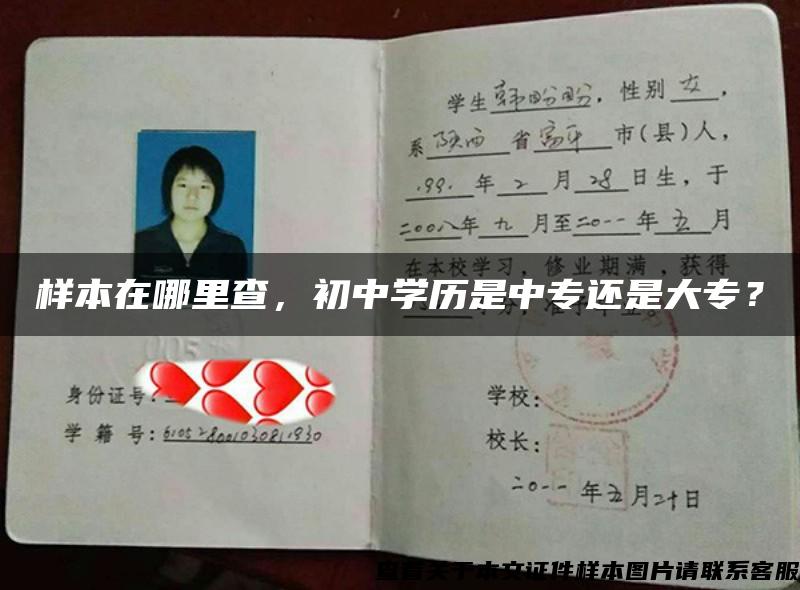 身份证号:
学 籍 号: 610528001030811930
学生韩盼盼，性别 女，
系 陕西 省富平 市(县)人，
1991 年 2 月 28 日生，于
二〇〇八年 九 月至二〇一一 年 五 月
在本校学习，修业期满，获得
样本在哪里查，初中学历是中专还是大专？
学校:
校长:
二〇一一 年五月二十日
查看关于本文证件样本图片请联系客服